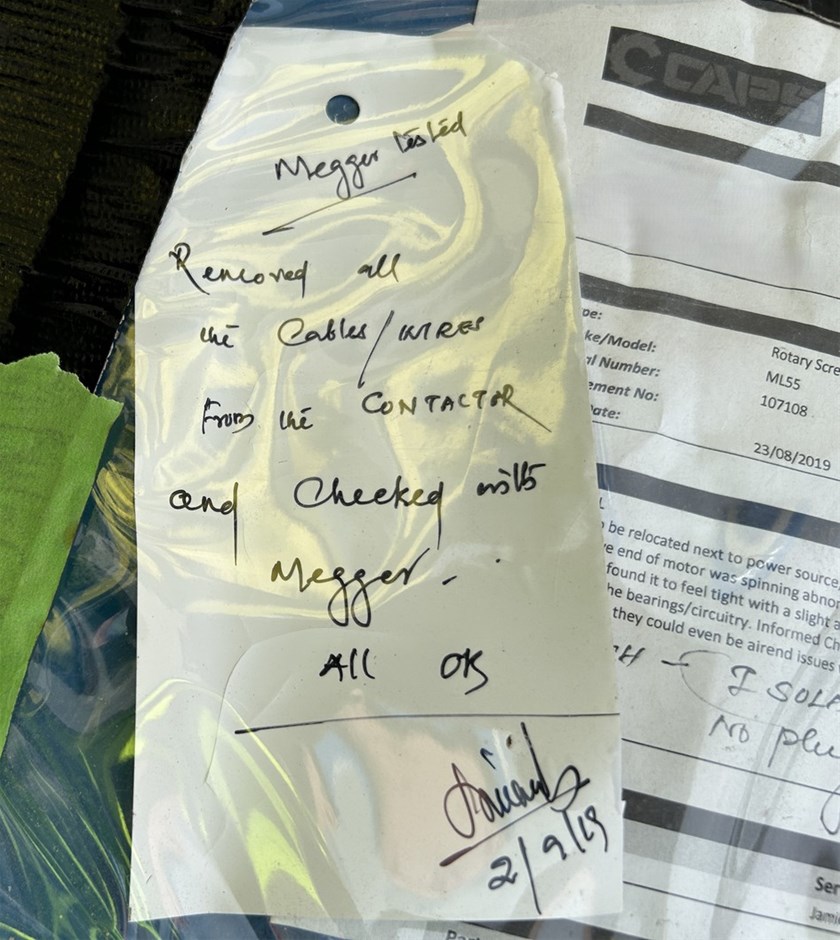 Megger tested
Removed all
the Cables/WIRES
From the CONTACTOR
and Checked with
Megger.
All OK
2/9/19
CAPS
pe:
ke/Model:
Rotary Scre
al Number:
ML55
ement No:
107108
Date:
23/08/2019
L
be relocated next to power source,
e end of motor was spinning abnor
found it to feel tight with a slight a
he bearings/circuitry. Informed Ch
they could even be airend issues
H - I SOLA
No plu
Ser
Jami
Par